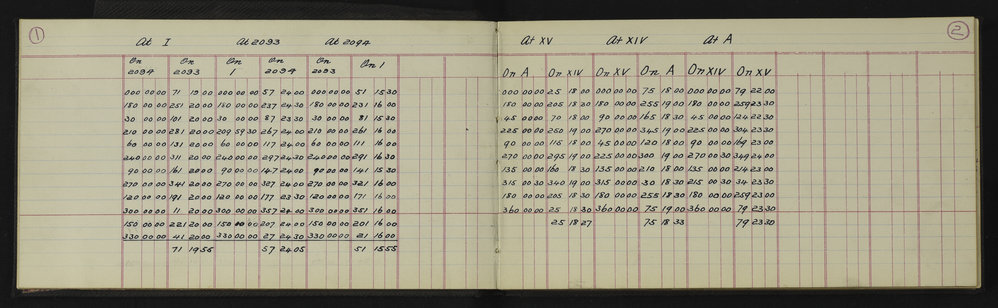 1
At I At 2093 At 2094
On 2094 On 2093 On 1 On 2094 On 2093 On 1
000 00 00 71 19 00 000 00 00 57 24 00 000 00 00 51 15 30
180 00 00 251 20 00 180 00 00 237 24 30 180 00 00 231 16 00
30 00 00 101 20 00 30 00 00 87 23 30 30 00 00 81 15 30
210 00 00 281 20 00 209 59 30 267 24 00 210 00 00 261 16 00
60 00 00 131 20 00 60 00 00 117 24 00 60 00 00 111 16 00
240 00 00 311 20 00 240 00 00 297 24 30 240 00 00 291 16 30
90 00 00 161 20 00 90 00 00 147 24 00 90 00 00 141 15 30
270 00 00 341 20 00 270 00 00 327 24 00 270 00 00 321 16 00
120 00 00 191 20 00 120 00 00 177 23 30 120 00 00 171 16 00
300 00 00 11 20 00 300 00 00 357 24 00 300 00 00 351 16 00
150 00 00 221 20 00 150 00 00 207 24 00 150 00 00 201 16 00
330 00 00 41 20 00 330 00 00 27 24 30 330 00 00 21 16 00
71 19 55 57 24 05 51 15 55
2
At XV At XIV At A
On A On XIV On XV On A On XIV On XV
000 00 00 25 18 00 000 00 00 75 18 00 000 00 00 79 22 00
180 00 00 205 18 30 180 00 00 255 19 00 180 00 00 259 23 30
45 00 00 70 18 00 90 00 00 165 18 30 45 00 00 124 22 30
225 00 00 250 19 00 270 00 00 345 19 00 225 00 00 304 23 30
90 00 00 115 18 00 45 00 00 120 18 00 90 00 00 169 23 00
270 00 00 295 19 00 225 00 00 300 19 00 270 00 30 349 24 00
135 00 00 160 18 30 135 00 00 210 18 00 135 00 00 214 23 00
315 00 30 340 19 00 315 00 00 30 18 30 315 00 30 34 23 30
180 00 00 205 18 30 180 00 00 255 18 30 180 00 00 259 23 00
360 00 00 25 18 30 360 00 00 75 19 00 360 00 00 79 23 30
25 18 27 75 18 33 79 23 30